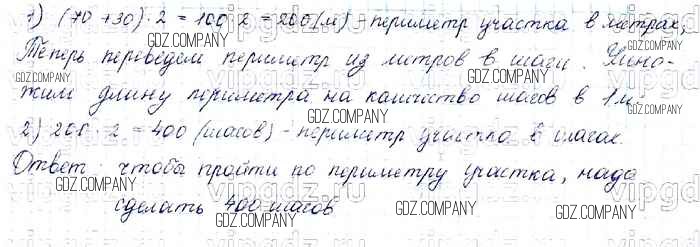 1) (70 + 30) · 2 = 100 · 2 = 200 (м) - периметр участка в метрах,
GDZ.COMPANY
Теперь переведем периметр из метров в шаги. Умно-
GDZ.COMPANY GDZ.COMPANY
жим длину периметра на количество шагов в 1 м
GDZ.COMPANY
2) 200 · 2 = 400 (шагов) - периметр участка в шагах.
GDZ.COMPANY GDZ.COMPANY
Ответ: чтобы пройти по периметру участка, надо
GDZ.COMPANY GDZ.COMPANY
сделать 400 шагов
GDZ.COMPANY GDZ.COMPANY GDZ.COMPANY
vipgdz.ru